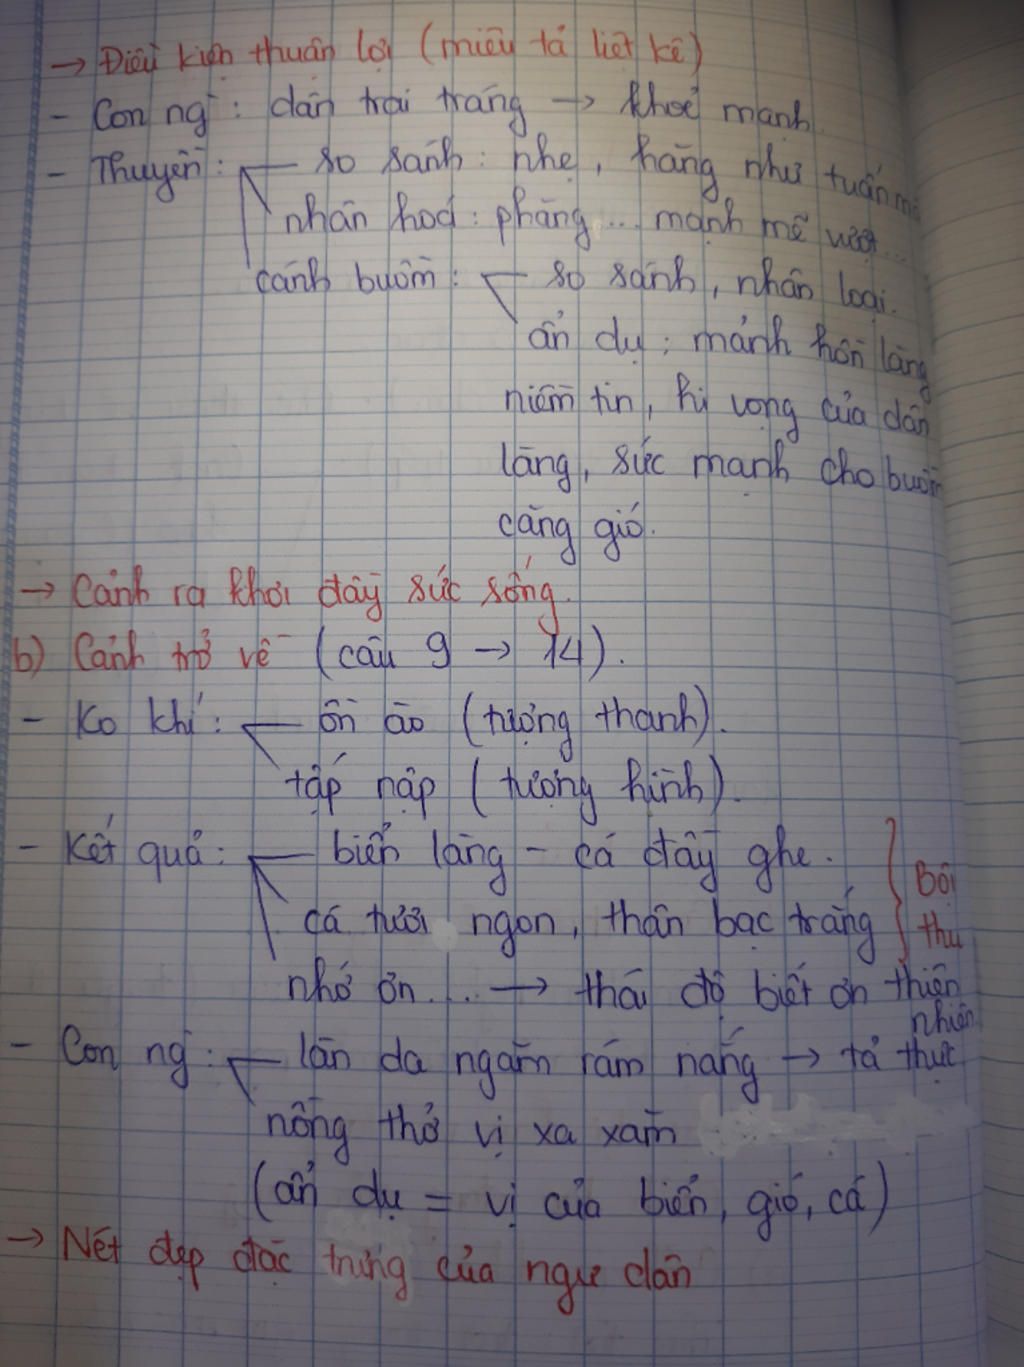 → Điều kiện thuận lợi (miêu tả liệt kê)
- Con ng : dân trai tráng → khoẻ mạnh.
- Thuyền : so sánh : nhẹ, hăng như tuấn mã
nhân hoá : phăng ... mạnh mẽ vượt ...
cánh buồm : so sánh, nhân loại.
ẩn dụ : mảnh hồn làng
niềm tin, hi vọng của dân
làng, sức mạnh cho buồm
căng gió.
→ Cảnh ra khơi đầy sức sống.
b) Cảnh trở về (câu 9 → 14).
- Ko khí : ồn ào (tượng thanh).
tấp nập (tượng hình).
- Kết quả : biển lặng - cá đầy ghe.
cá tươi ngon, thân bạc trắng
Bội
thu
nhớ ơn ... → thái độ biết ơn thiên
nhiên
- Con ng : làn da ngăm rám nắng → tả thực
nồng thở vị xa xăm
(ẩn dụ = vị của biển, gió, cá)
→ Nét đẹp đặc trưng của ngư dân